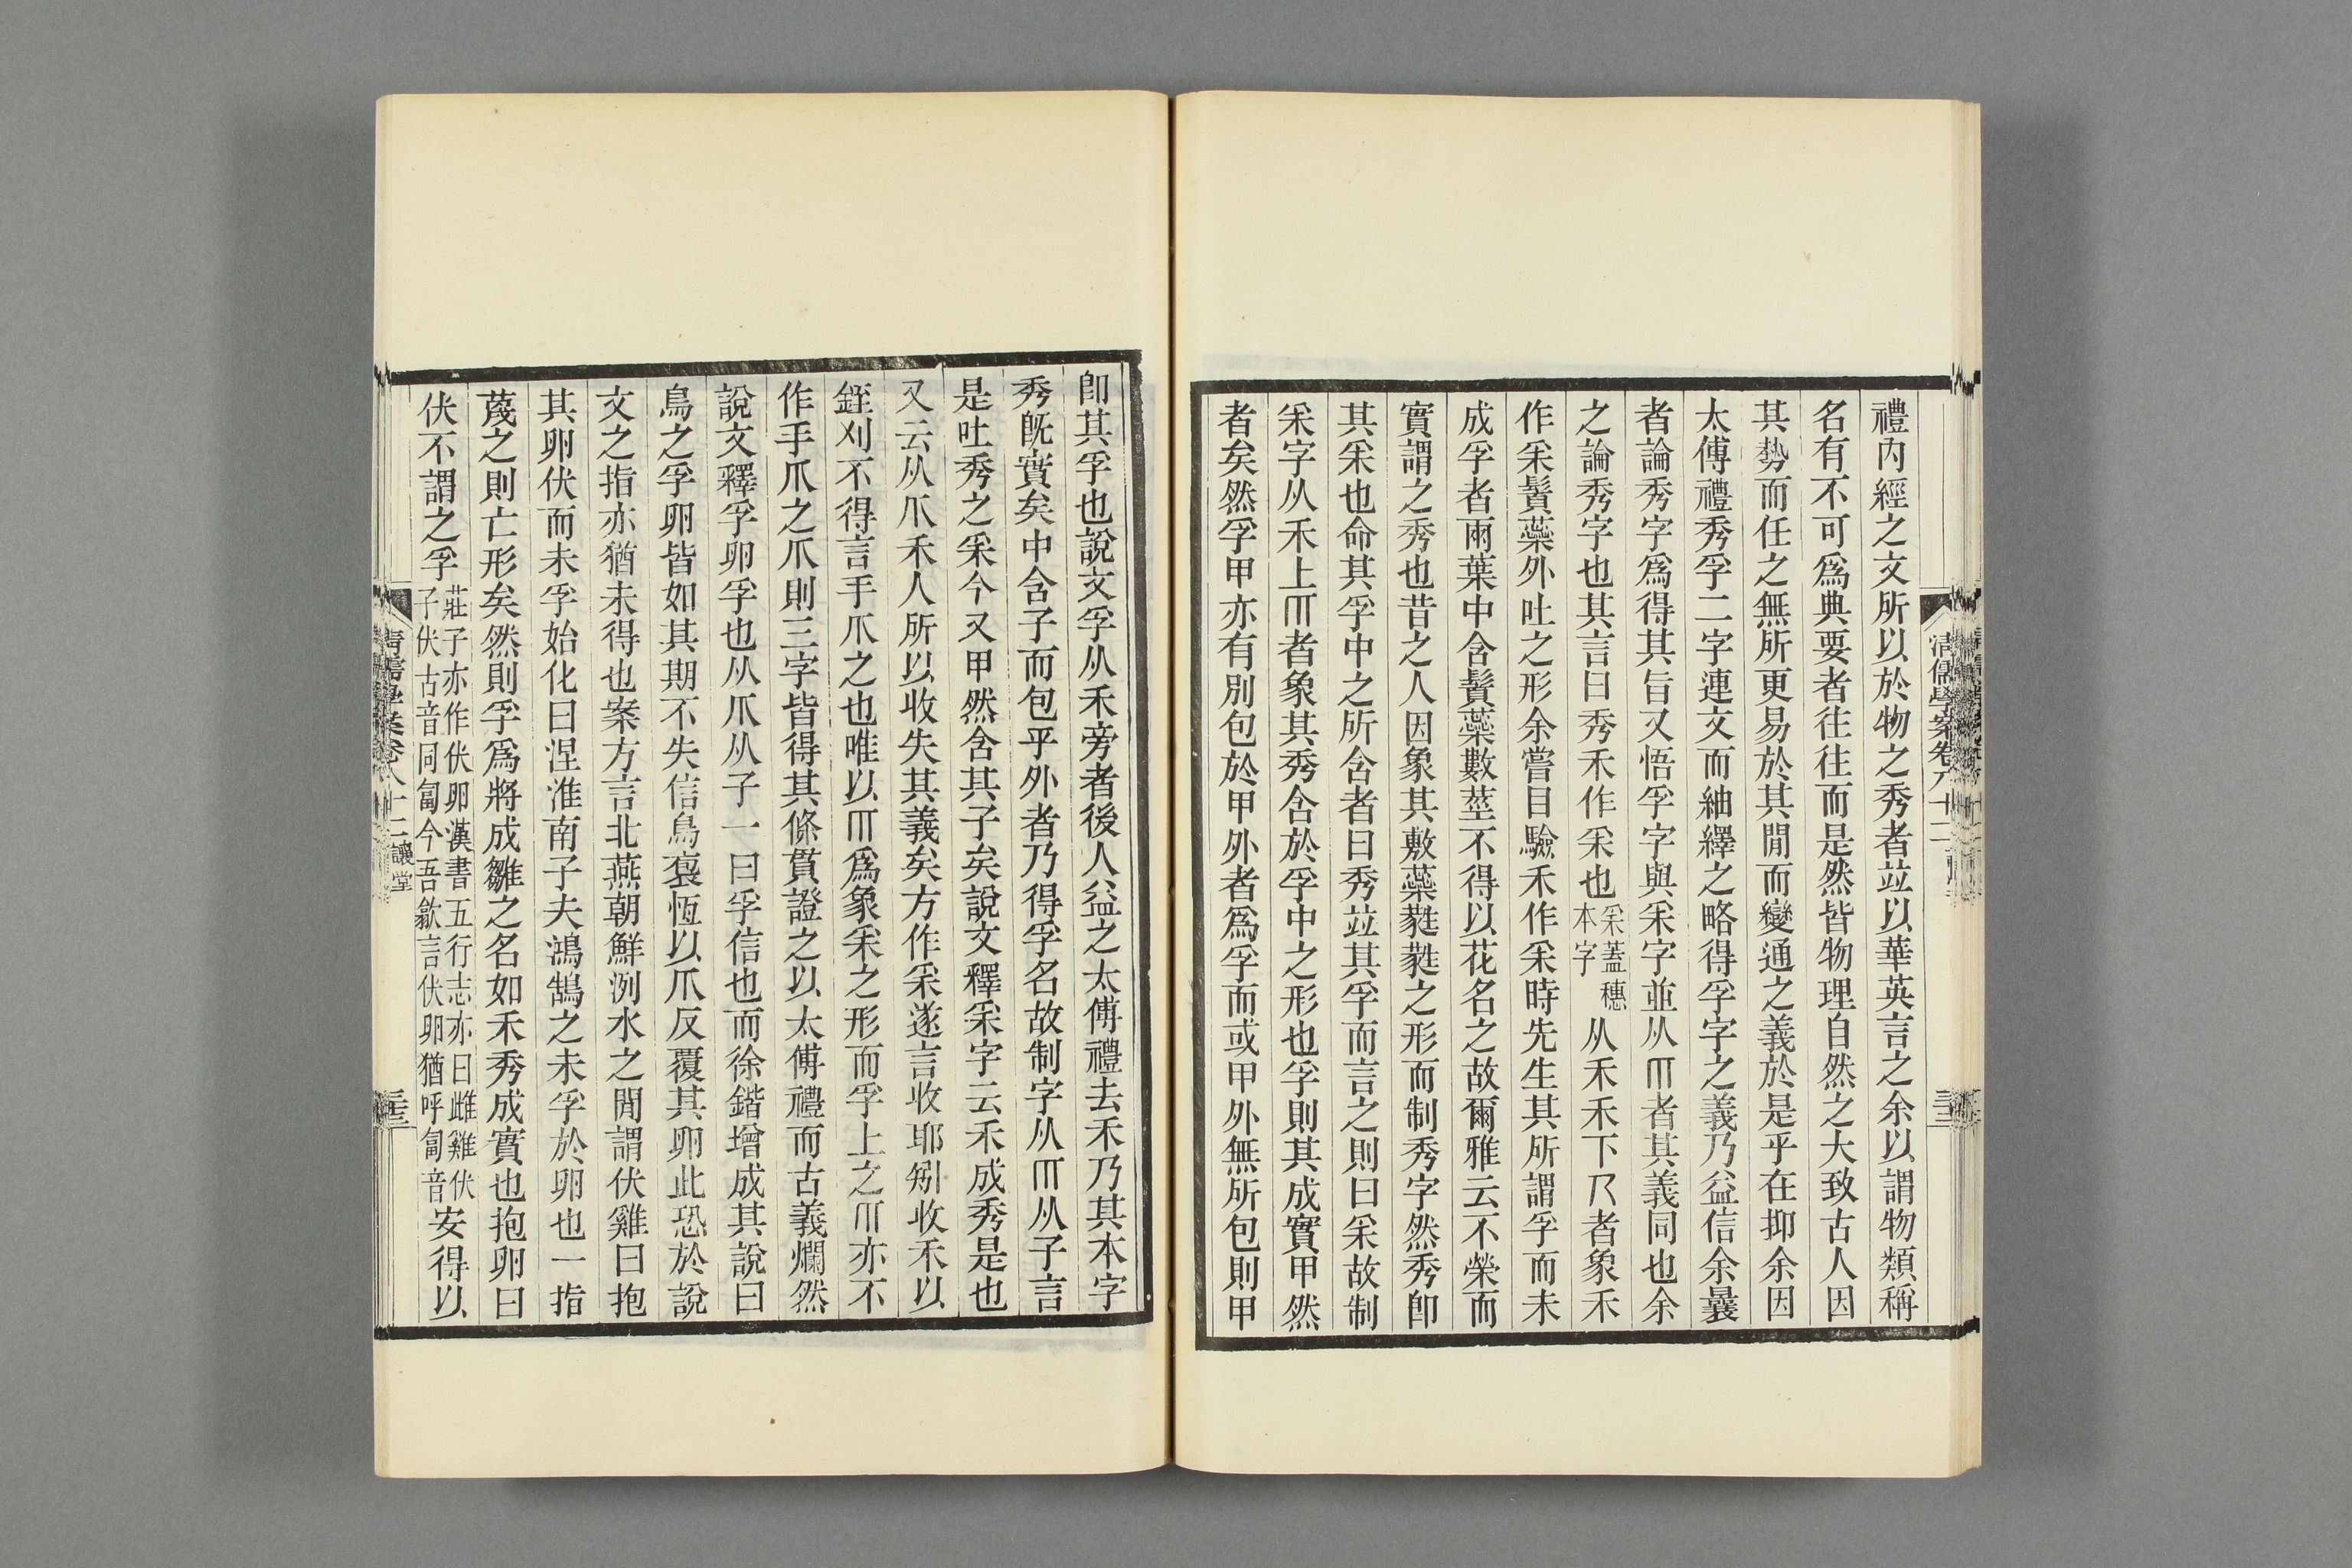 禮內經之文所以於物之秀者竝以華英言之余以謂物類稱
名有不可爲典要者往往而是然皆物理自然之大致古人因
其勢而任之無所更易於其閒而變通之義於是乎在抑余因
太傅禮秀孚二字連文而紬繹之略得孚字之義乃益信余曩
者論秀字爲得其旨又悟孚字與采字並从爫者其義同也余
之論秀字也其言曰秀禾作采也采蓋穗本字从禾禾下𠄎者象禾
作采鬢蘂外吐之形余嘗目驗禾作采時先生其所謂孚而未
成孚者兩葉中含鬢蘂數莖不得以花名之故爾雅云不榮而
實謂之秀也昔之人因象其敷蘂蕤蕤之形而制秀字然秀卽
其采也命其孚中之所含者曰秀竝其孚而言之則曰采故制
采字从禾上爫者象其秀含於孚中之形也孚則其成實甲然
者矣然孚甲亦有別包於甲外者爲孚而或甲外無所包則甲
清儒學案卷八十二
卽其孚也說文孚从禾旁者後人益之太傅禮去禾乃其本字
秀旣實矣中含子而包乎外者乃得孚名故制字从爫从子言
是吐秀之采今又甲然含其子矣說文釋采字云禾成秀是也
又云从爪禾人所以收失其義矣方作采遂言收耶矧收禾以
銍刈不得言手爪之也唯以爫爲象采之形而孚上之爫亦不
作手爪之爪則三字皆得其條貫證之以太傅禮而古義爛然
說文釋孚卵孚也从爪从子一曰孚信也而徐鍇增成其說曰
鳥之孚卵皆如其期不失信鳥裒恆以爪反覆其卵此恐於說
文之指亦猶未得也案方言北燕朝鮮洌水之閒謂伏雞曰抱
其卵伏而未孚始化曰涅淮南子夫鴻鵠之未孚於卵也一指
蔑之則亡形矣然則孚爲將成雛之名如禾秀成實也抱卵曰
伏不謂之孚莊子亦作伏卵漢書五行志亦曰雌雞伏子伏古音同匐今吾歙言伏卵猶呼匐音安得以
清儒學案卷八十二